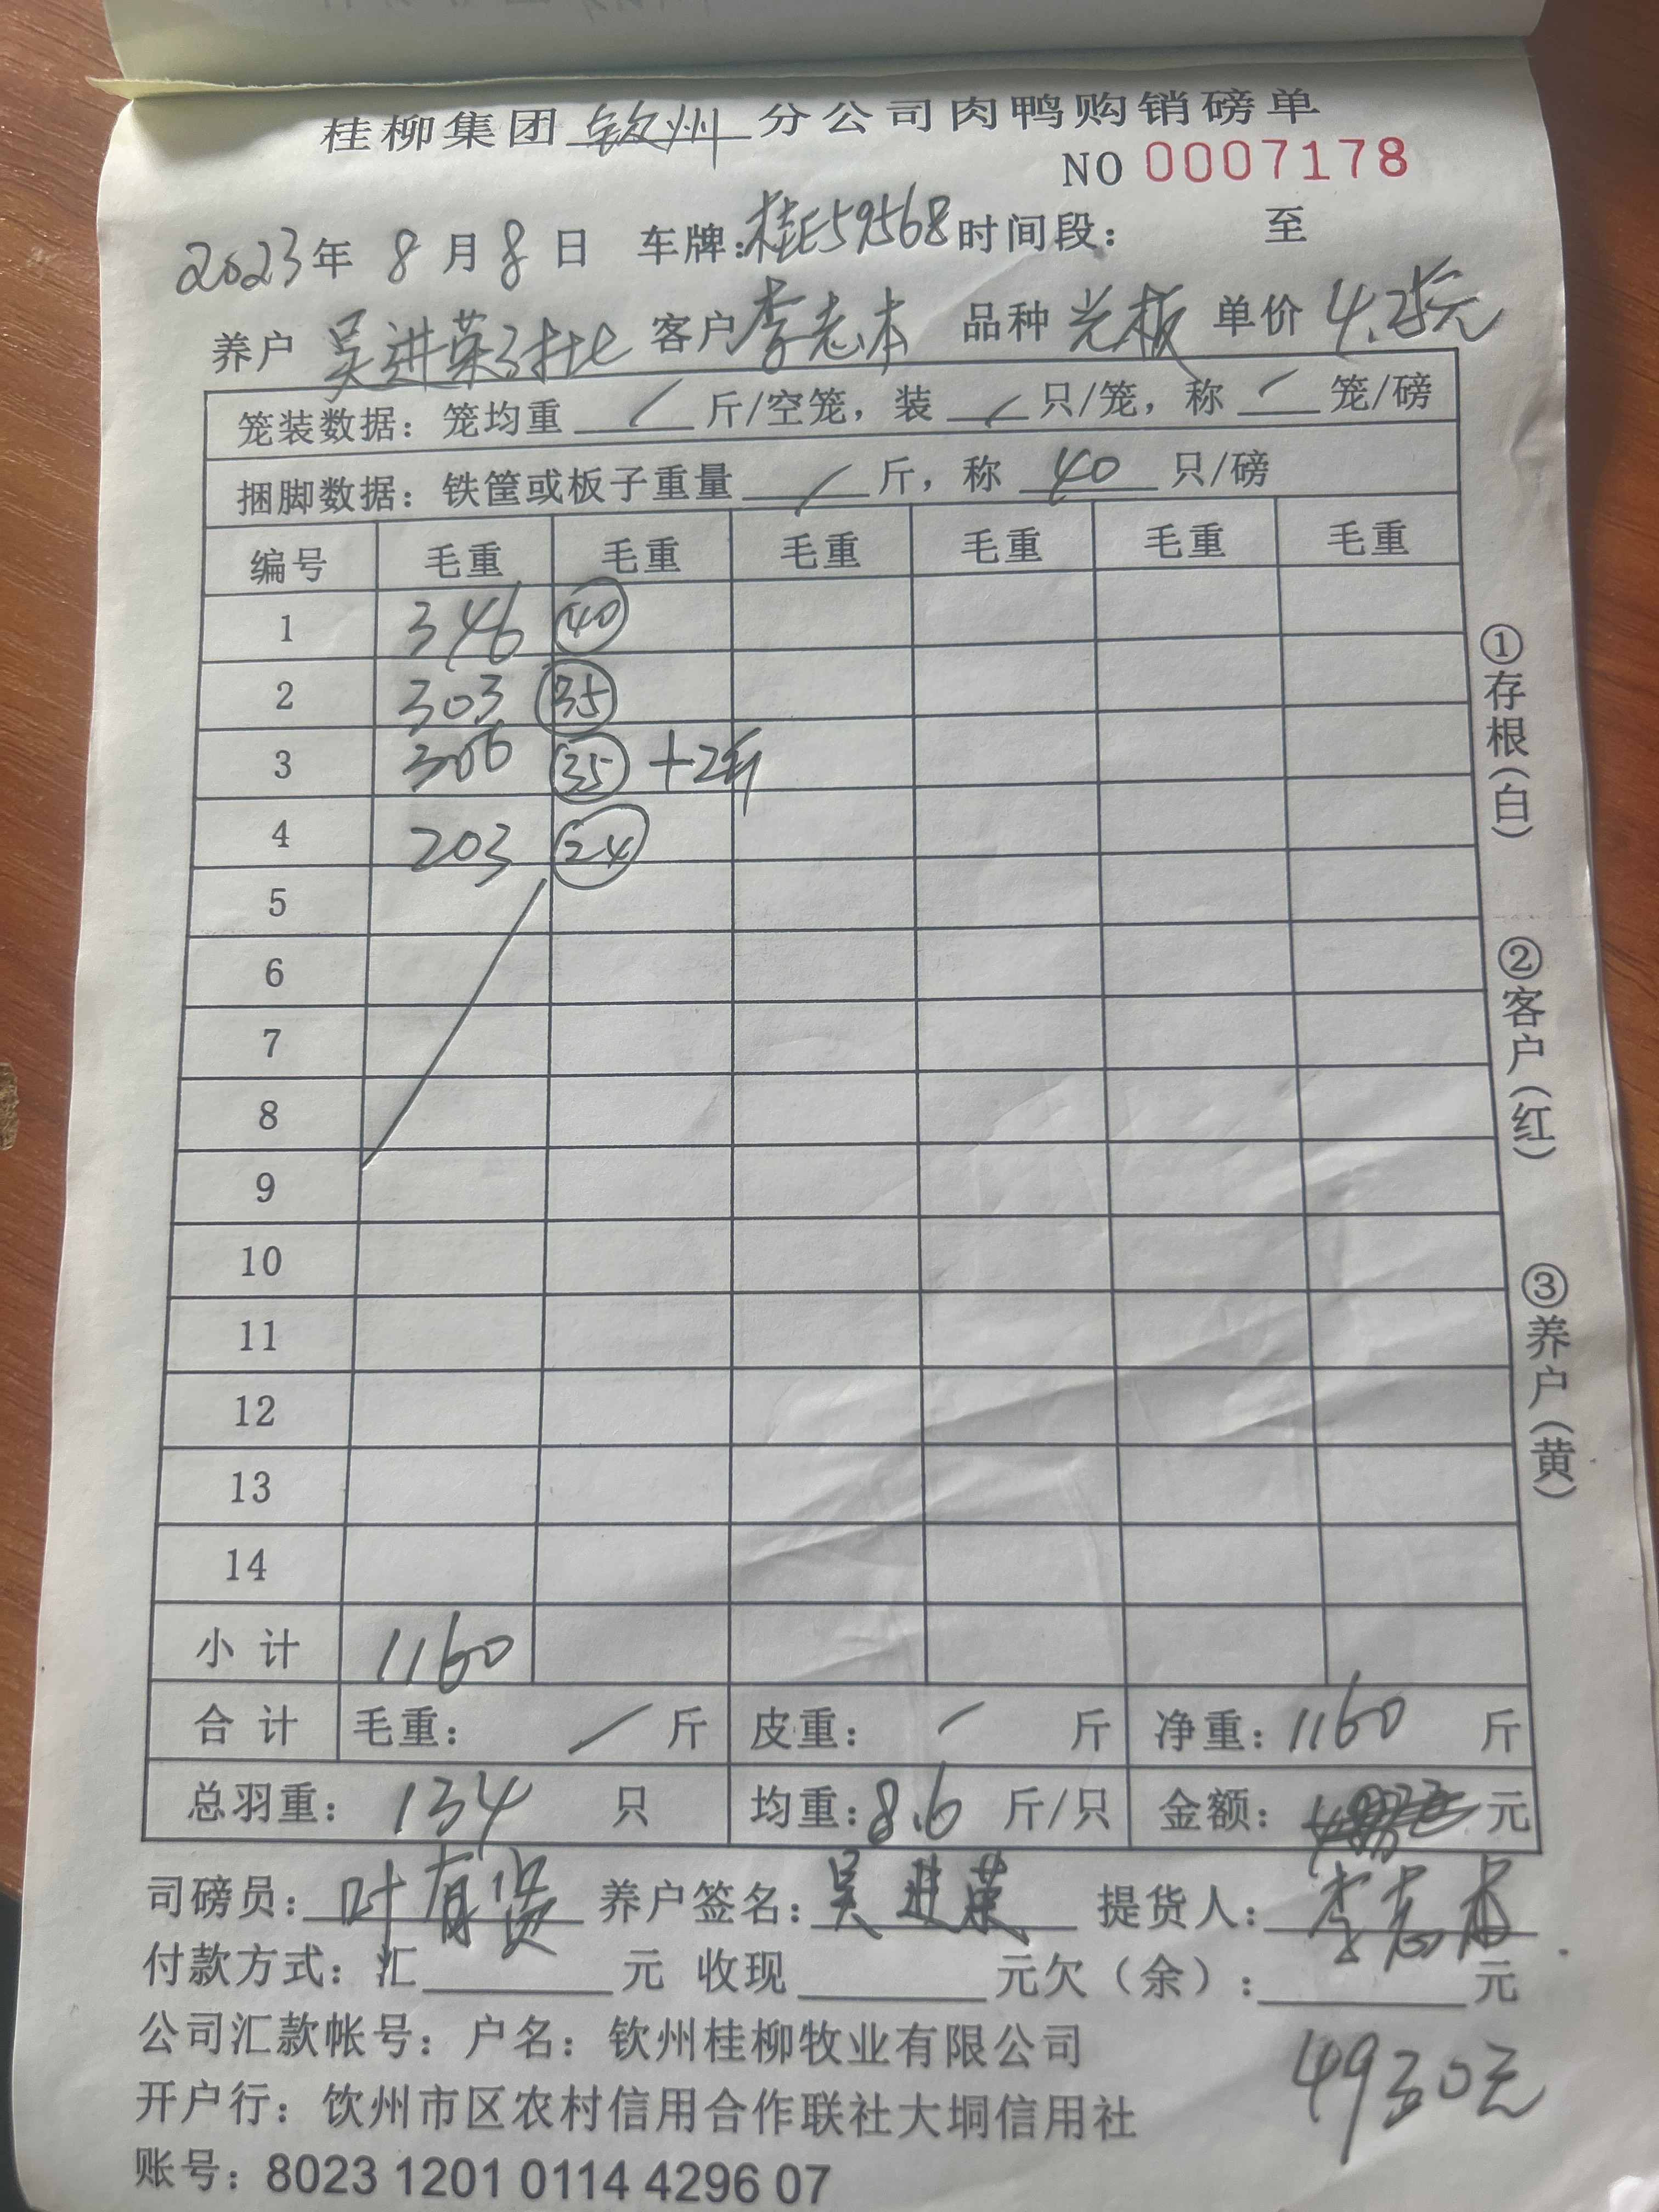 桂柳集团 钦州 分公司肉鸭购销磅单
NO 0007178
2023年 8 月 8 日 车牌:桂E59568 时间段: 至
养户 吴进荣3批 客户 李志本 品种 光板 单价 4.25元
笼装数据: 笼均重 / 斤/空笼, 装 / 只/笼, 称 / 笼/磅
捆脚数据: 铁筐或板子重量 / 斤, 称 40 只/磅
编号 毛重 毛重 毛重 毛重 毛重 毛重
1 346 40
2 303 35
3 306 35 +2斤
4 203 24
5
6
7
8
9
10
11
12
13
14
小 计 1160
合 计 毛重: / 斤 皮重: / 斤 净重: 1160 斤
总羽重: 134 只 均重: 8.6 斤/只 金额: 元
司磅员: 叶有 养户签名: 吴进荣 提货人: 李志本
付款方式: 汇 元 收现 元欠(余): 元
公司汇款帐号: 户名: 钦州桂柳牧业有限公司
4930元
开户行: 钦州市区农村信用合作联社大垌信用社
账号: 8023 1201 0114 4296 07
①存根(白)
②客户(红)
③养户(黄)